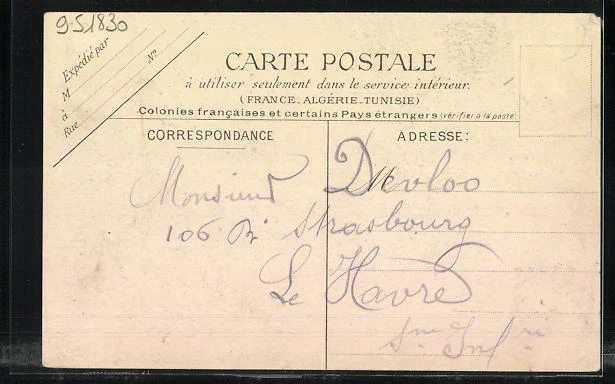 9-51830
Expédié par
M
à
Rue
Nº
CARTE POSTALE
à utiliser seulement dans le service intérieur.
(FRANCE-ALGÉRIE-TUNISIE)
Colonies françaises et certains Pays étrangers (vérifier à la poste)
CORRESPONDANCE
ADRESSE:
M
Monsieur Devloo
106 Bd Strasbourg
Le Havre
Sne Infre